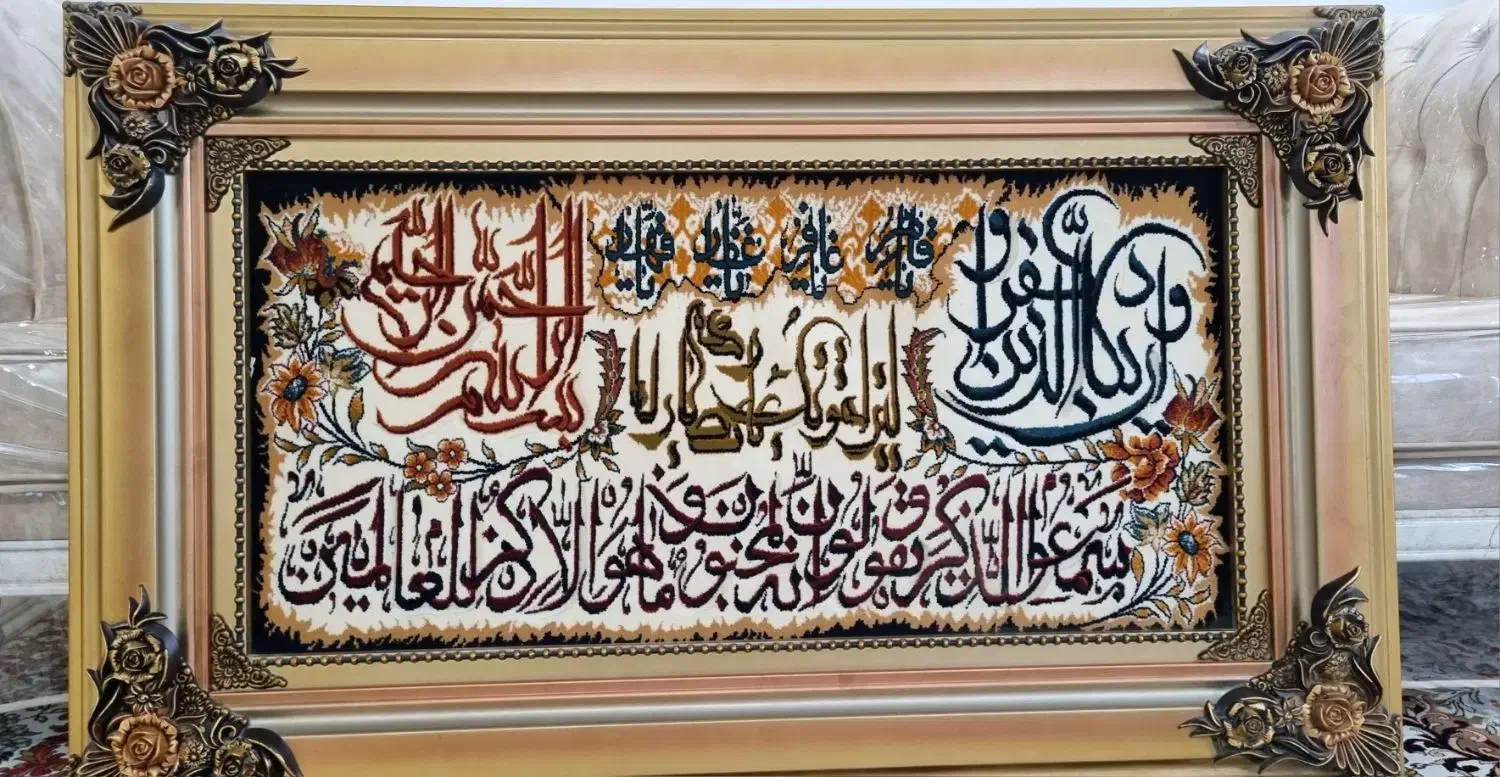 بسم الله الرحمن الرحیم
یا قاهر یا غافر یا غفار یا قهار
وان یکاد الذین کفروا
لیزلقونک بابصارهم لما
سمعوا الذکر و یقولون انه لمجنون و ما هو الا ذکر للعالمین